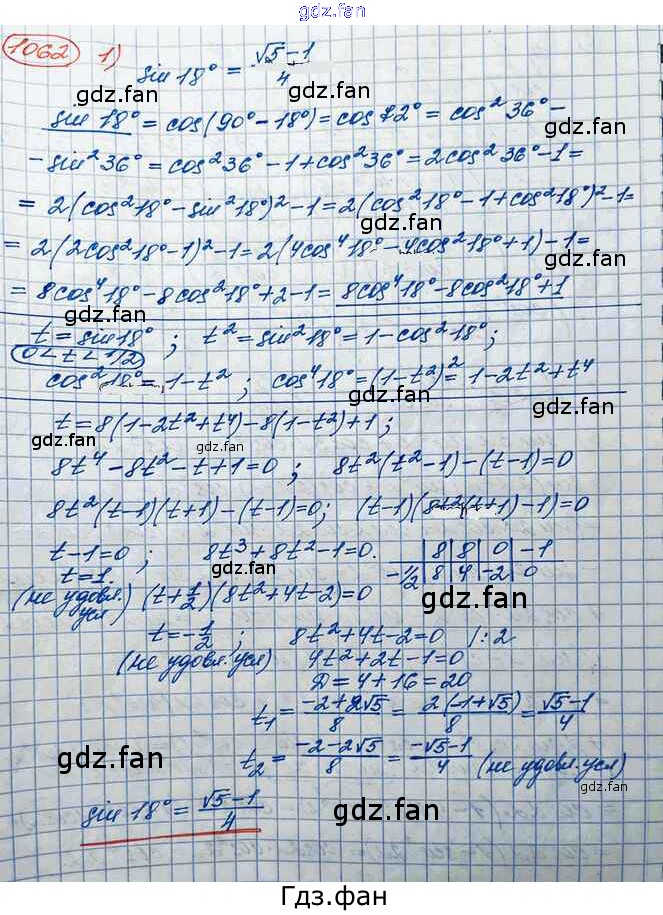 gdz.fan
1062 1) sin 18° = (√5-1)/4
gdz.fan gdz.fan
sin 18° = cos(90° - 18°) = cos 72° = cos²36° -
gdz.fan gdz.fan
- sin²36° = cos²36° - 1 + cos²36° = 2cos²36° - 1 =
= 2(cos²18° - sin²18°)² - 1 = 2(cos²18° - 1 + cos²18°)² - 1 =
gdz.fan gdz.fan
= 2(2cos²18° - 1)² - 1 = 2(4cos⁴18° - 4cos²18° + 1) - 1 =
gdz.fan
= 8cos⁴18° - 8cos²18° + 2 - 1 = 8cos⁴18° - 8cos²18° + 1
gdz.fan gdz.fan
t = sin 18° ; t² = sin²18° = 1 - cos²18° ;
0 < t < 1/2
gdz.fan gdz.fan
cos²18° = 1 - t² ; cos⁴18° = (1-t²)² = 1 - 2t² + t⁴
t = 8(1 - 2t² + t⁴) - 8(1 - t²) + 1 ;
gdz.fan gdz.fan
8t⁴ - 8t² - t + 1 = 0 ; 8t²(t² - 1) - (t - 1) = 0
gdz.fan
8t²(t-1)(t+1) - (t-1) = 0; (t-1)(8t²(t+1) - 1) = 0
gdz.fan
t - 1 = 0 ; 8t³ + 8t² - 1 = 0. | 8 | 8 | 0 | -1
t = 1. -1/2 | 8 | 4 | -2 | 0
gdz.fan
(не удовл. усл) (t + 1/2)(8t² + 4t - 2) = 0
gdz.fan
t = -1/2 ; 8t² + 4t - 2 = 0 /: 2
gdz.fan
(не удовл. усл) 4t² + 2t - 1 = 0
gdz.fan
D = 4 + 16 = 20
t₁ = (-2+2√5)/8 = 2(-1+√5)/8 = (√5-1)/4
gdz.fan gdz.fan
t₂ = (-2-2√5)/8 = (-√5-1)/4 (не удовл. усл)
gdz.fan
gdz.fan
sin 18° = (√5-1)/4
gdz.fan gdz.fan
Гдз.фан